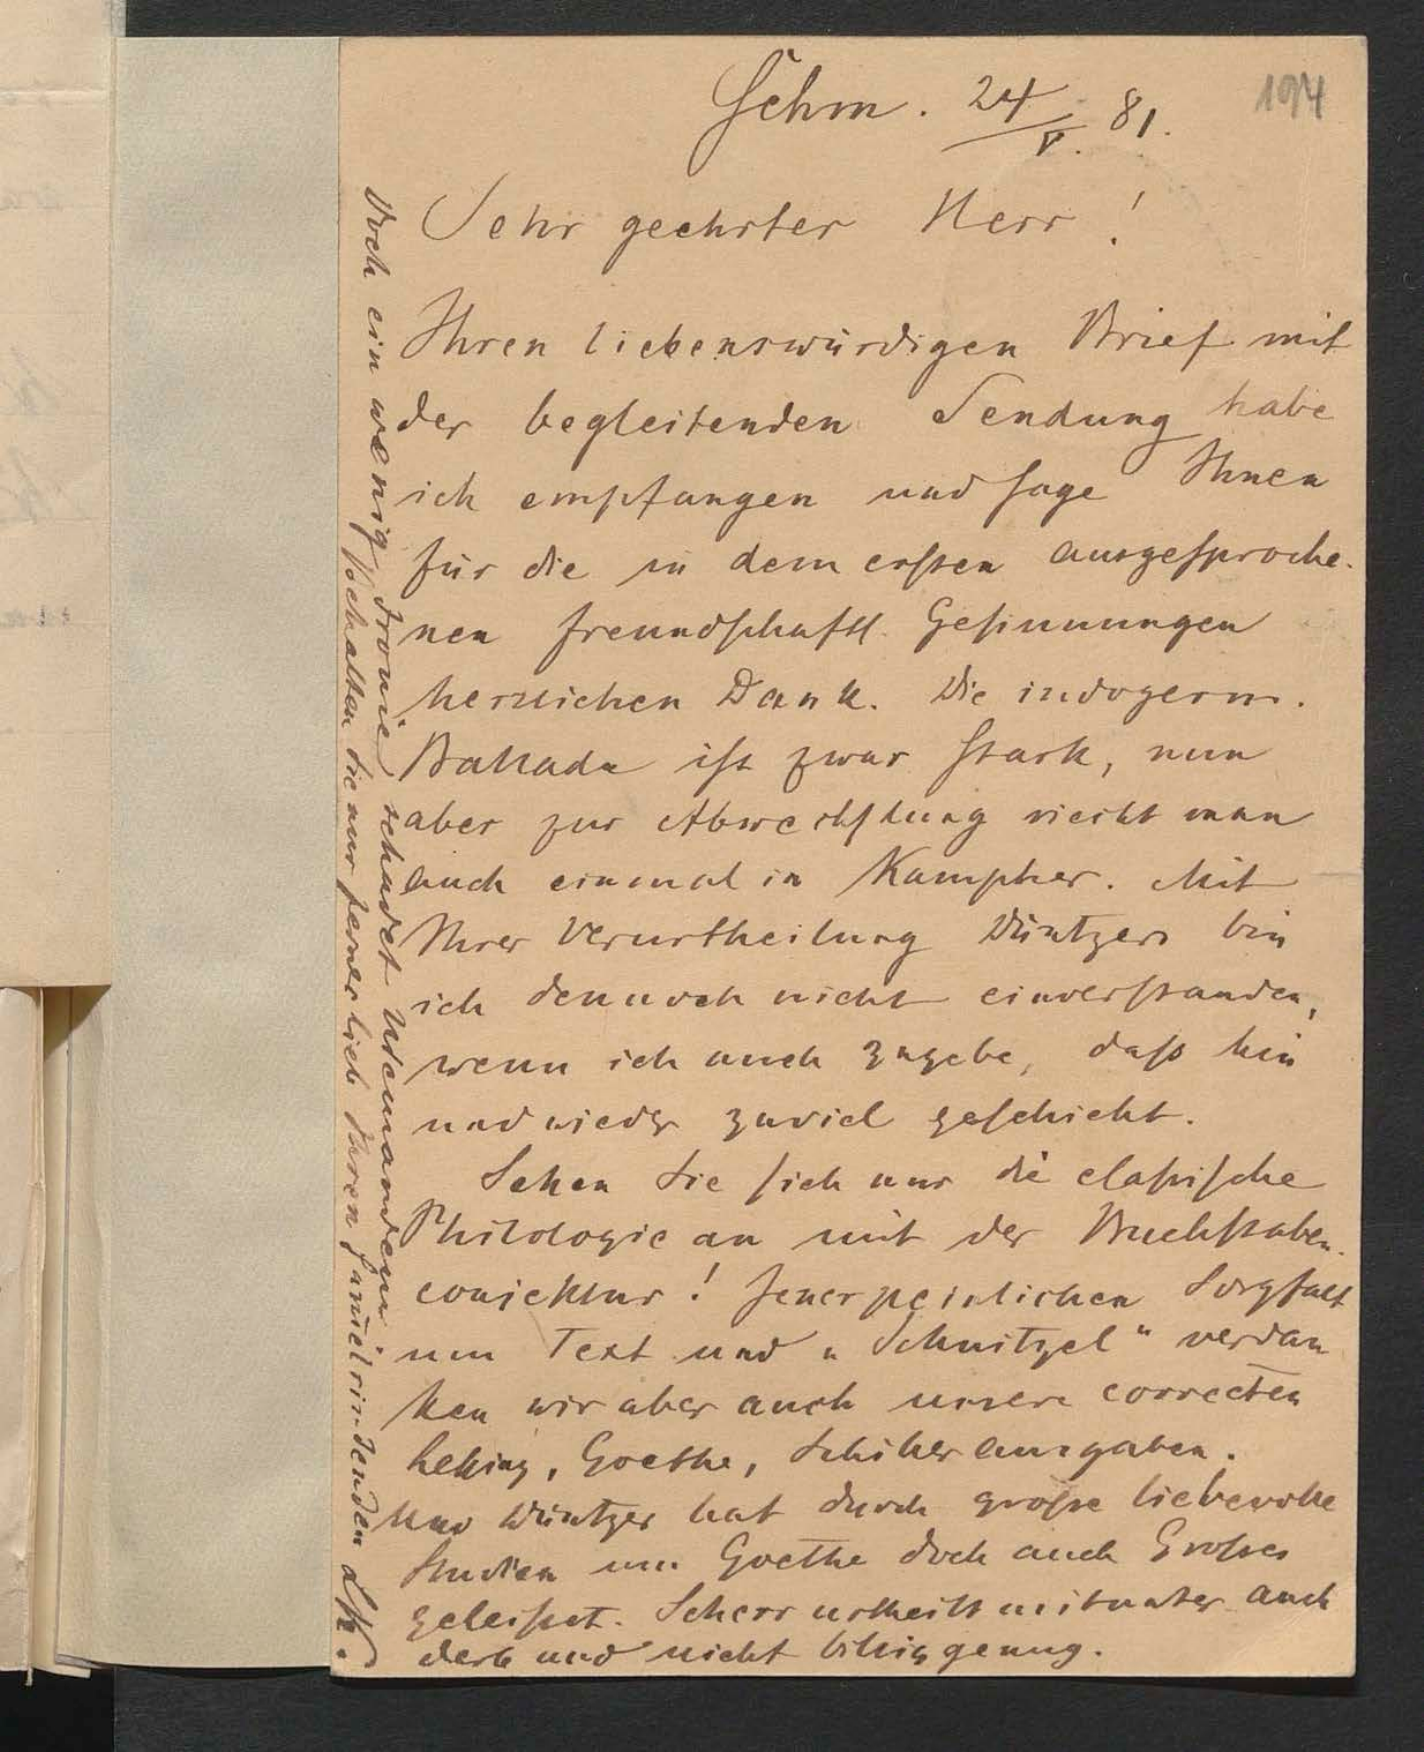 194
Sehm. 24/V. 81.
Sehr geehrter Herr!
Ihren liebenswürdigen Brief mit
der begleitenden Sendung habe
ich empfangen und sage Ihnen
für die in dem ersten ausgesproche-
nen freundschaftl. Gesinnungen
herzlichen Dank. Die indogerm.
Ballade ist zwar stark, nun
aber zur Abwechslung riecht man
auch einmal in Kampher. Mit
Ihrer Verurtheilung Düntzers bin
ich dennoch nicht einverstanden,
wenn ich auch zugebe, daß hin
und wieder zuviel geschieht.
Sehen Sie sich nur die classische
Philologie an mit der Buchstaben-
conjektur! Jener peinlichen Sorgfalt
um Text und „Schnitzel" verdan
ken wir aber auch unsere correcten
Lessing, Goethe, Schillerausgaben.
Und Düntzer hat durch große liebevolle
Studien um Goethe doch auch Großes
geleistet. Scherr urtheilt mitunter auch
derb und nicht billig genug.
Doch ein wenig Ironie schadet Niemandem.
Behalten Sie nur ferner lieb Ihren